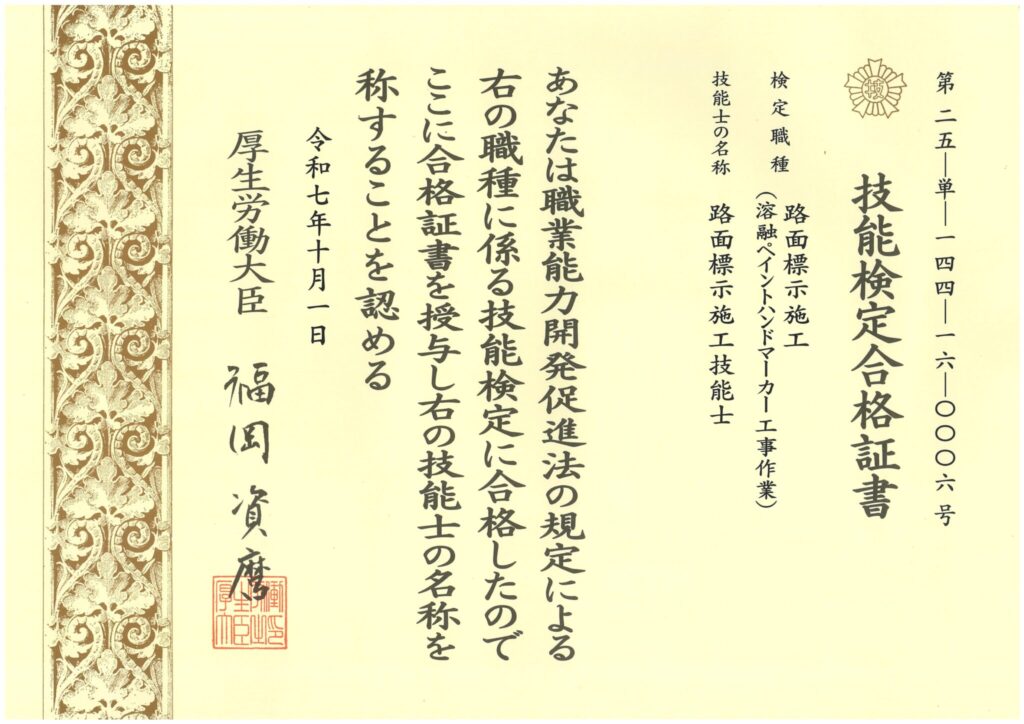 第二五―単―一四四―一六―〇〇〇六号
技
技能検定合格証書
検定職種 路面標示施工
(溶融ペイントハンドマーカー工事作業)
技能士の名称 路面標示施工技能士
あなたは職業能力開発促進法の規定による
右の職種に係る技能検定に合格したので
ここに合格証書を授与し右の技能士の名称を
称することを認める
令和七年十月一日
厚生労働大臣 福岡 資麿